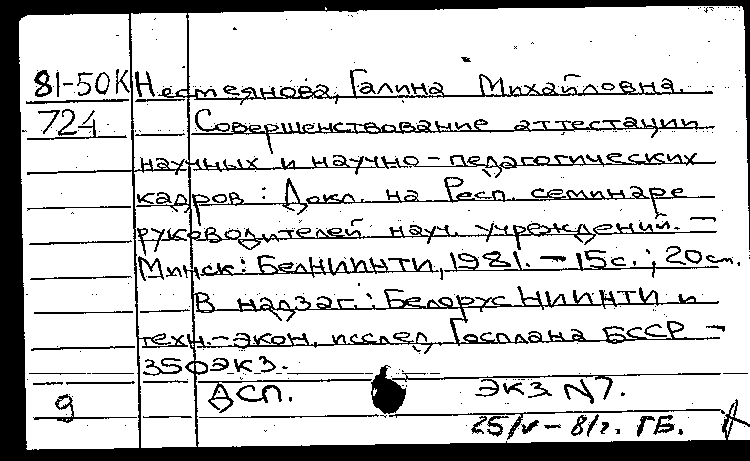 81-50К Нестеянова, Галина Михайловна.
724 Совершенствование аттестации
научных и научно-педагогических
кадров: Докл. на Респ. семинаре
руководителей науч. учреждений. –
Минск: БелНИИНТИ, 1981. – 15с.; 20см.
В надзаг.: Белорус НИИНТИ и
техн.-экон. исслед. Госплана БССР –
350 экз.
9 ДСП. экз. N7.
25/V – 81г. ГБ.